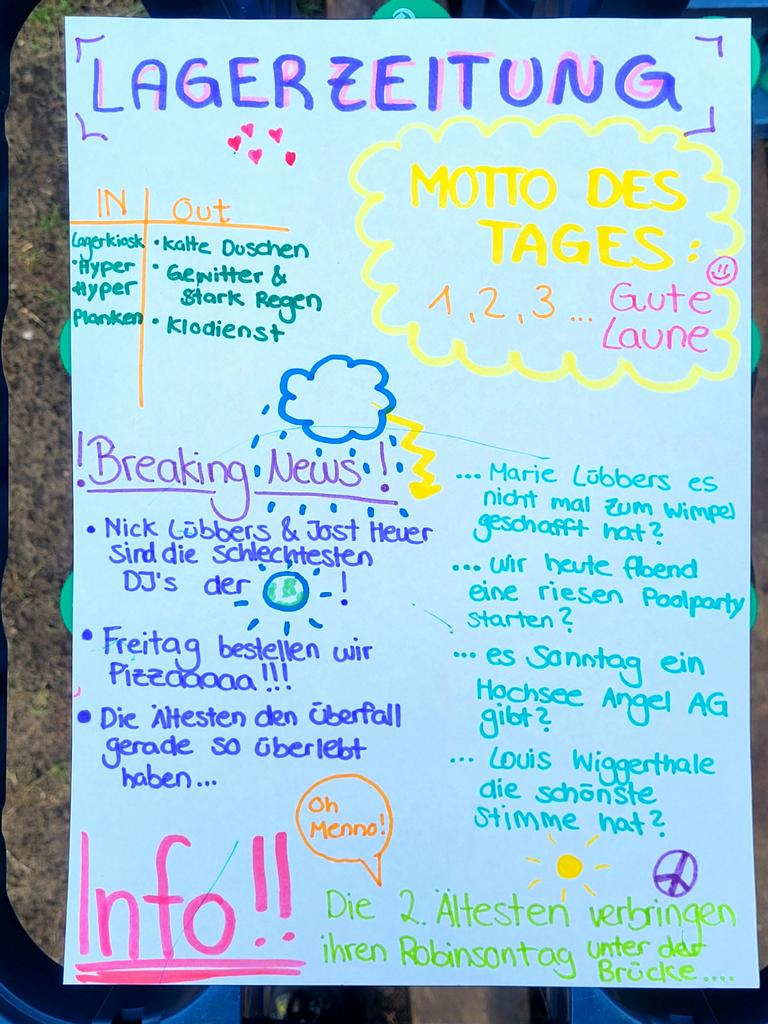 LAGERZEITUNG
IN
Out
Lagerkiosk
• Hyper
Hyper
Planken
• Kalte Duschen
• Gewitter &
Stark Regen
• Klodienst
MOTTO DES
TAGES:
1, 2, 3 ... Gute
Laune
! Breaking News !
• Nick Lübbers & Jost Heuer
sind die schlechtesten
DJ's der !
• Freitag bestellen wir
Pizzaaaaa!!!
• Die Ältesten den Überfall
gerade so überlebt
haben...
... Marie Lübbers es
nicht mal zum Wimpel
geschafft hat?
... wir heute Abend
eine riesen Poolparty
starten?
... es Sonntag ein
Hochsee Angel AG
gibt?
... Louis Wiggerthale
die schönste
Stimme hat?
Oh
Menno!
Info!!
Die 2. Ältesten verbringen
ihren Robinsontag unter der
Brücke....